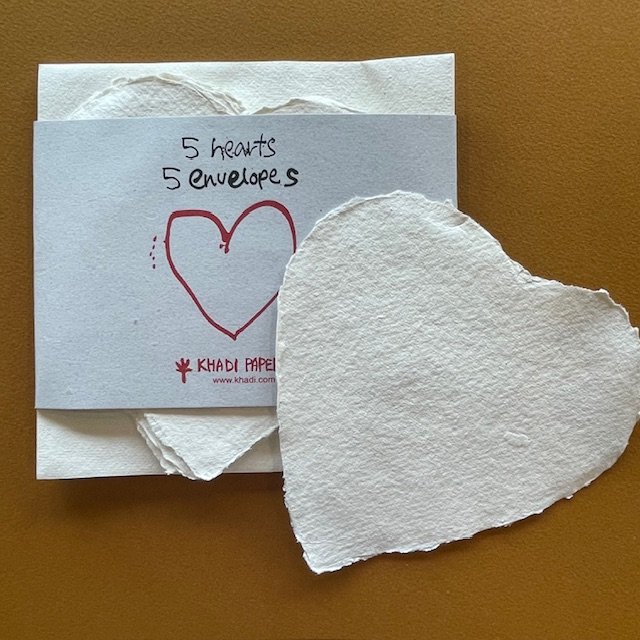 5 hearts
5 envelopes
KHADI PAPE
www.khadi.com